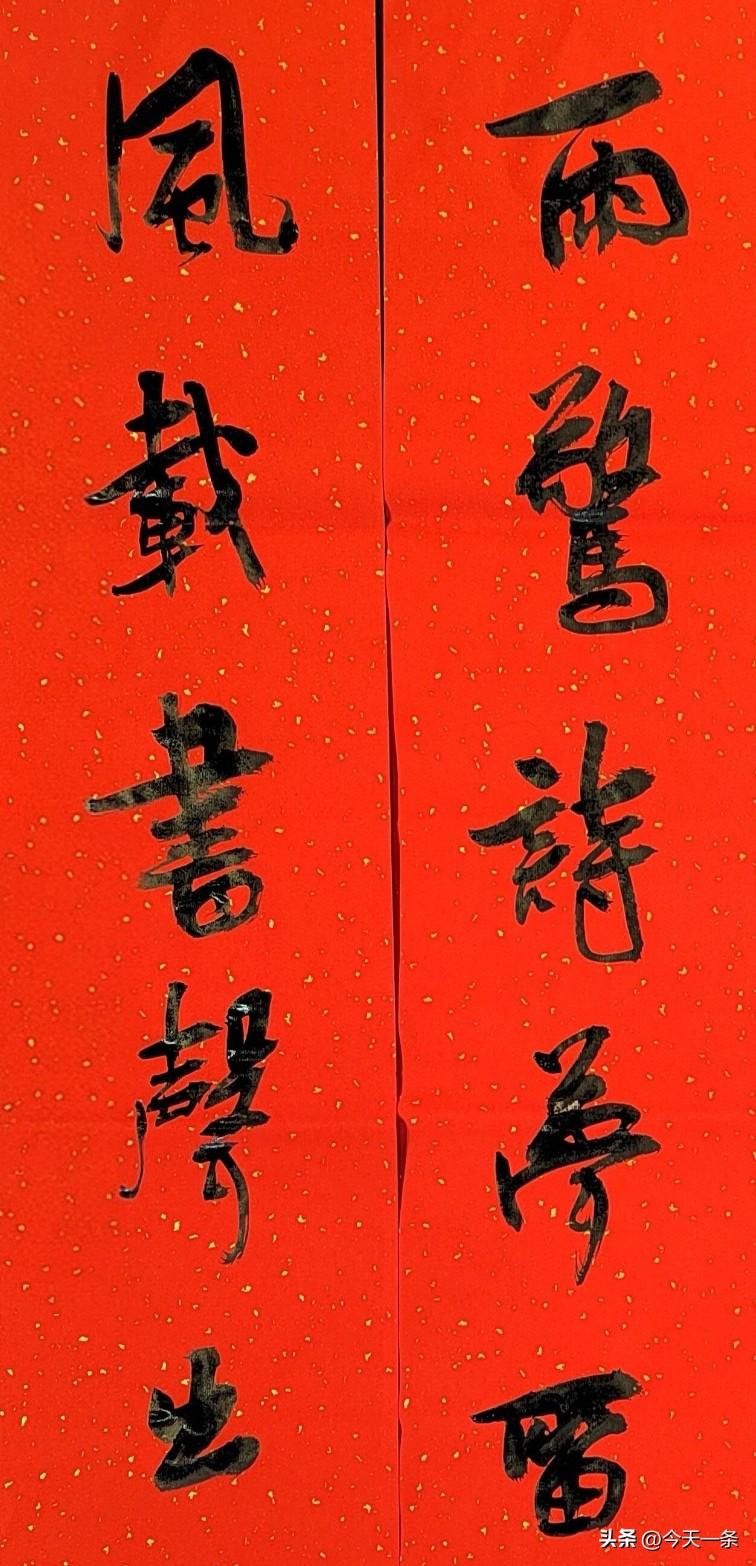 雨驚詩夢留
風載書聲出
头条 @今天一条